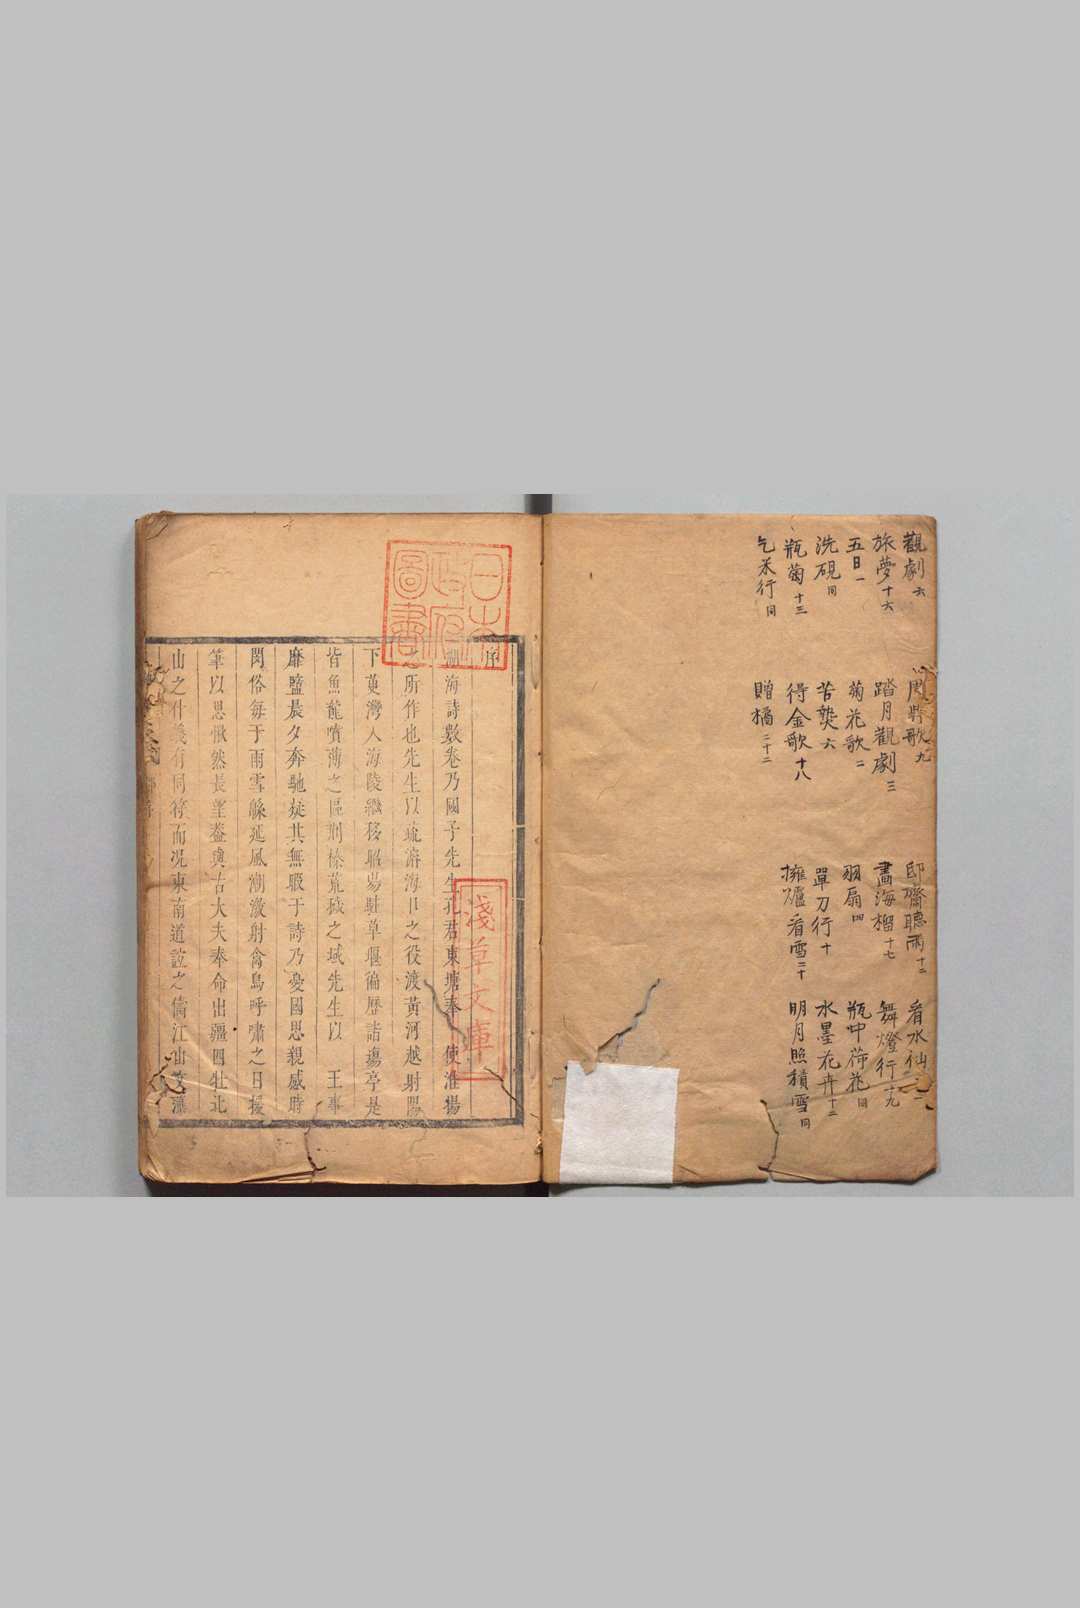 觀劇六
旅夢十六
五日一
洗硯同
瓶菊十三
乞米行同
歌九
踏月觀劇三
菊花歌二
苦熱六
得金歌十八
贈橘二十二
邸齋聽雨十二
畫海榴十七
羽扇四
單刀行十
擁爐看雪二十
看水仙
舞燈行十九
瓶中荷花同
水墨花卉十二
明月照積雪同
日本政府圖書
淺草文庫
序
湖海詩數卷乃國子先生孔君東塘奉 使淮揚
之所作也先生以疏濬海口之役渡黃河越射陽
下茰灣入海陵繼移昭陽駐草堰徧歷諸塲亭是
皆魚龍噴薄之區荆榛荒穢之域先生以 王事
靡盬晨夕奔馳㨗其無暇于詩乃憂國思親感時
閔俗每于雨雪緜延風潮激射禽鳥呼嘯之日援
筆以思愀然長望葢與古大夫奉命出疆四牡北
山之什義有同符而况東南道誼之儔江山